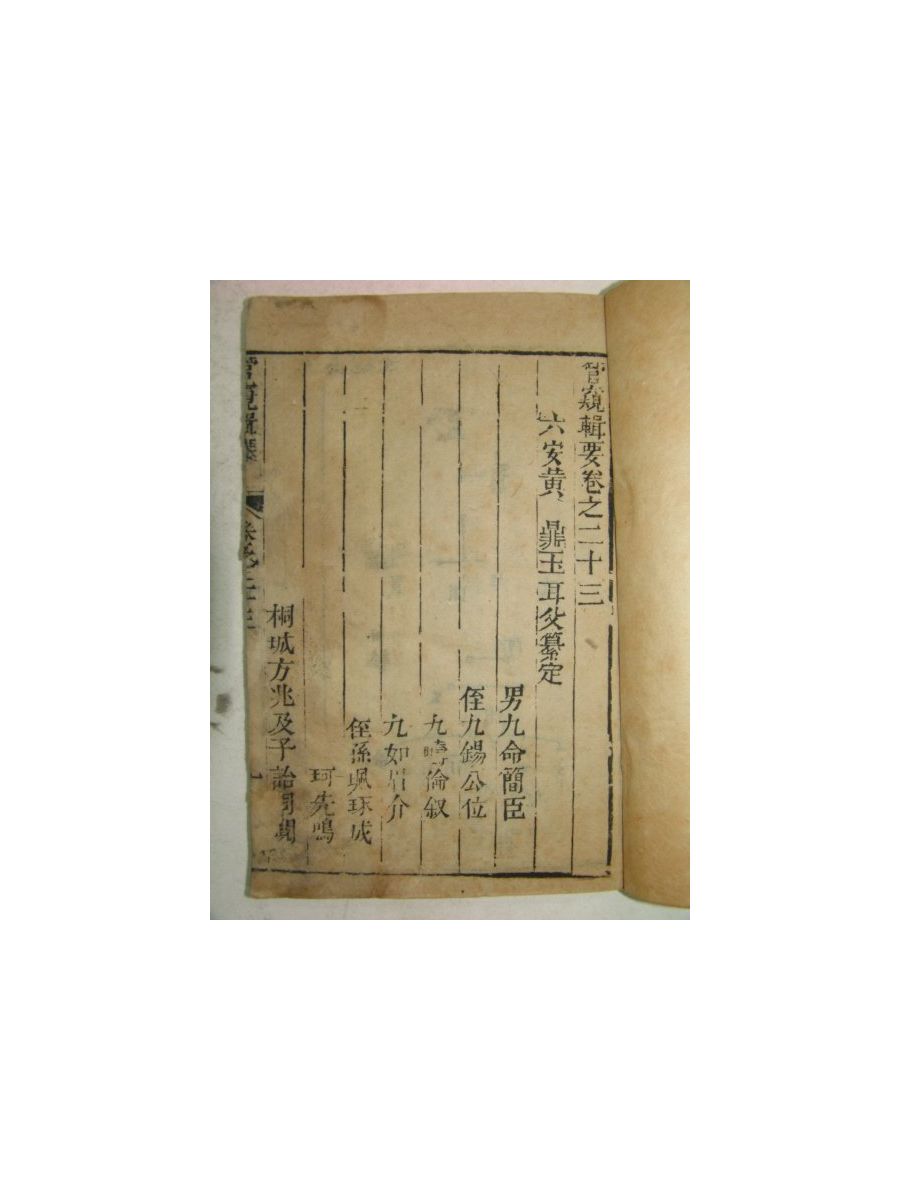 管窺輯要卷之二十三
六安黄 鼎玉耳父纂定
男九命簡臣
侄九錫公位
九疇倫叙
九如眉介
侄孫珮琢成
珂先鳴
桐城方兆及子詒同閱
管窺輯要 卷之二十三 一